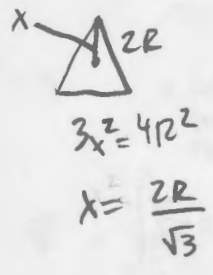 x
2R
3x²=4R²
x= 2R/√3